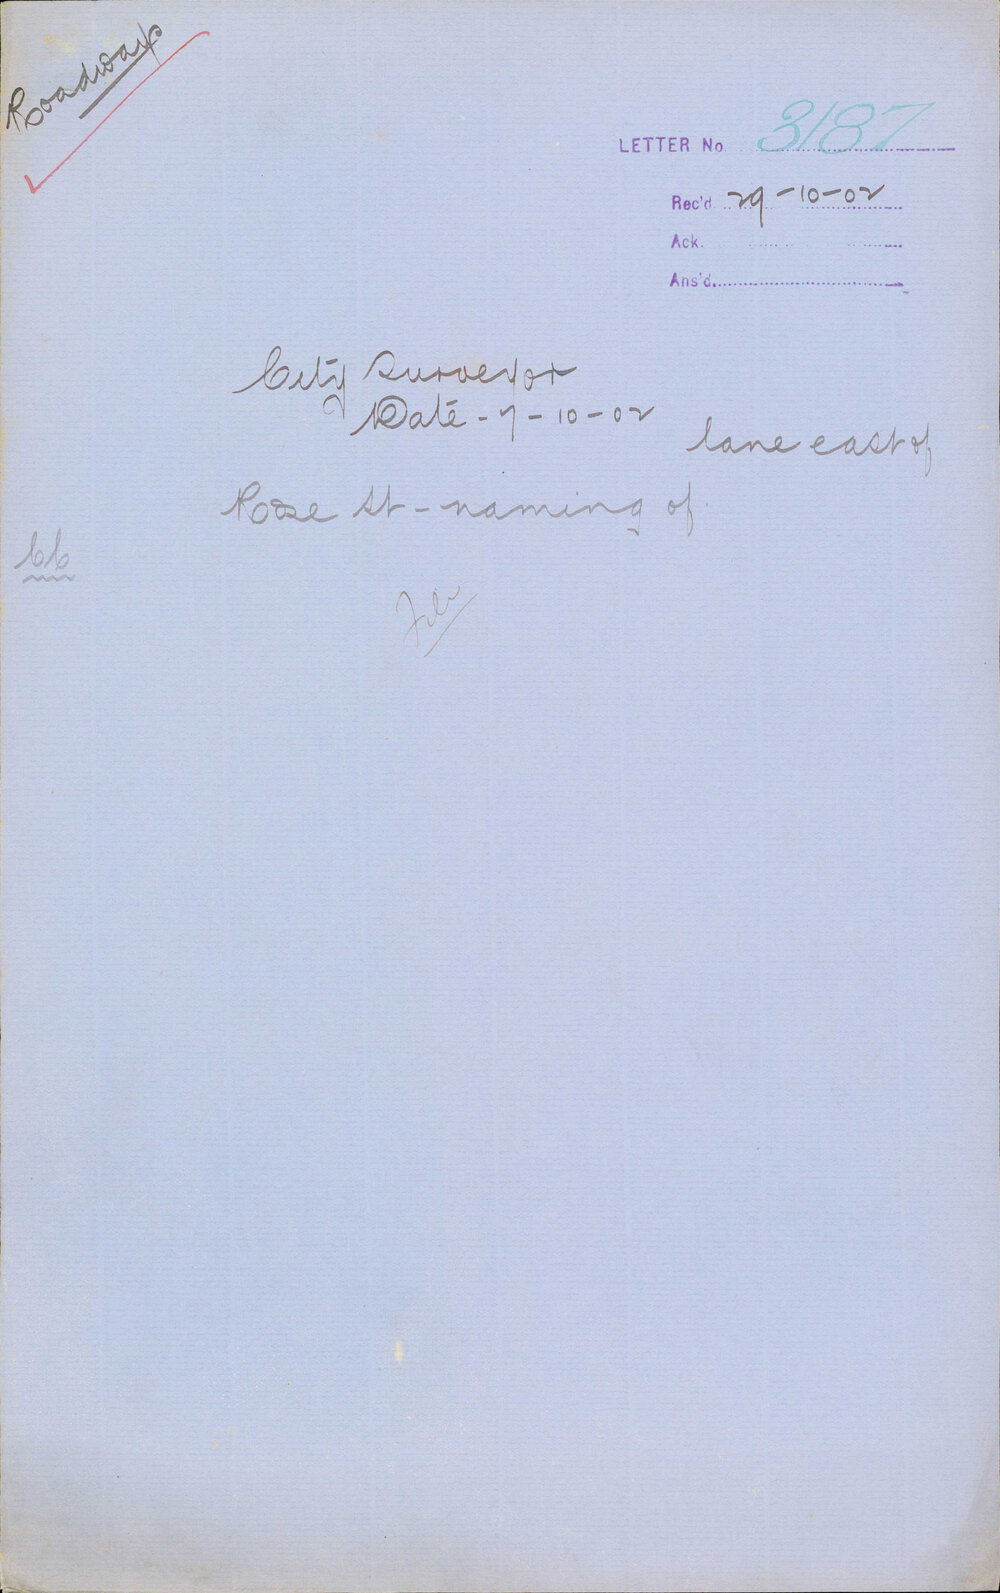 Roadways
LETTER No. 3187
Rec'd 29-10-02
Ack.
Ans'd.
City Surveyor
Date - 7-10-02
lane east of
Rose St - naming of
File